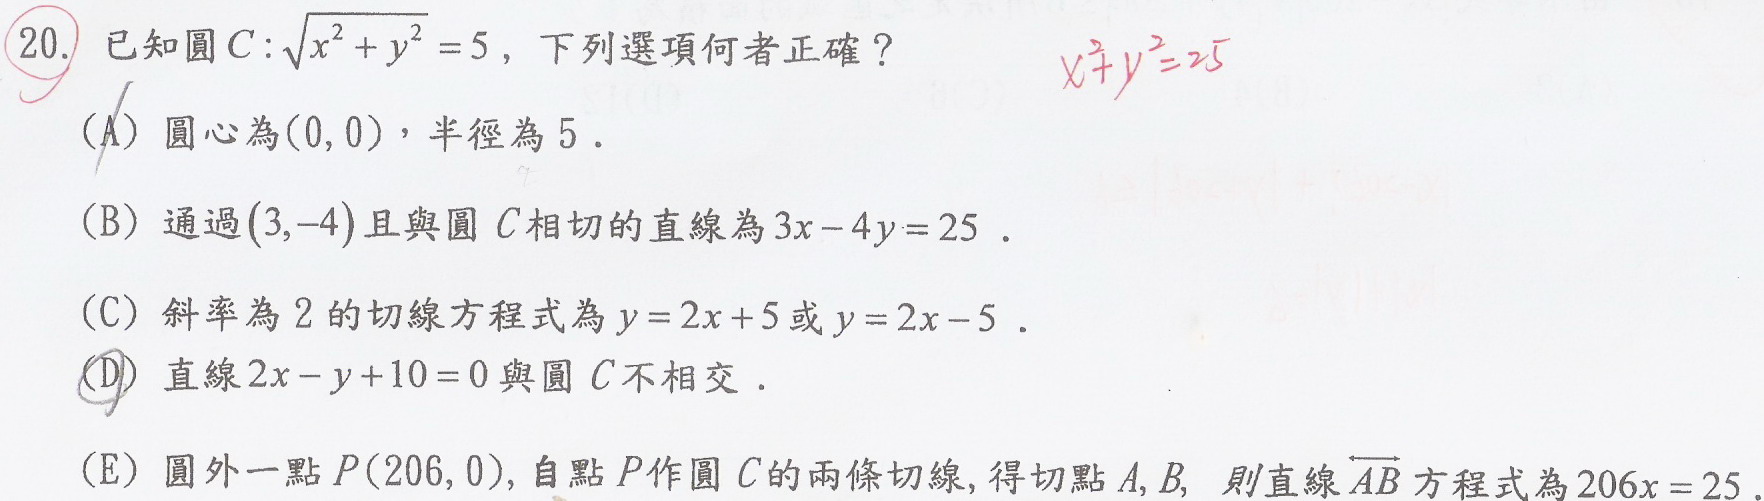 20. 已知圓 C : √(x² + y²) = 5, 下列選項何者正確？ x²+y²=25
(A) 圓心為(0, 0)，半徑為 5 .
(B) 通過(3,−4)且與圓 C 相切的直線為 3x − 4y = 25 .
(C) 斜率為 2 的切線方程式為 y = 2x + 5 或 y = 2x − 5 .
(D) 直線 2x − y + 10 = 0 與圓 C 不相交 .
(E) 圓外一點 P(206, 0), 自點 P 作圓 C 的兩條切線, 得切點 A, B, 則直線 AB 方程式為 206x = 25